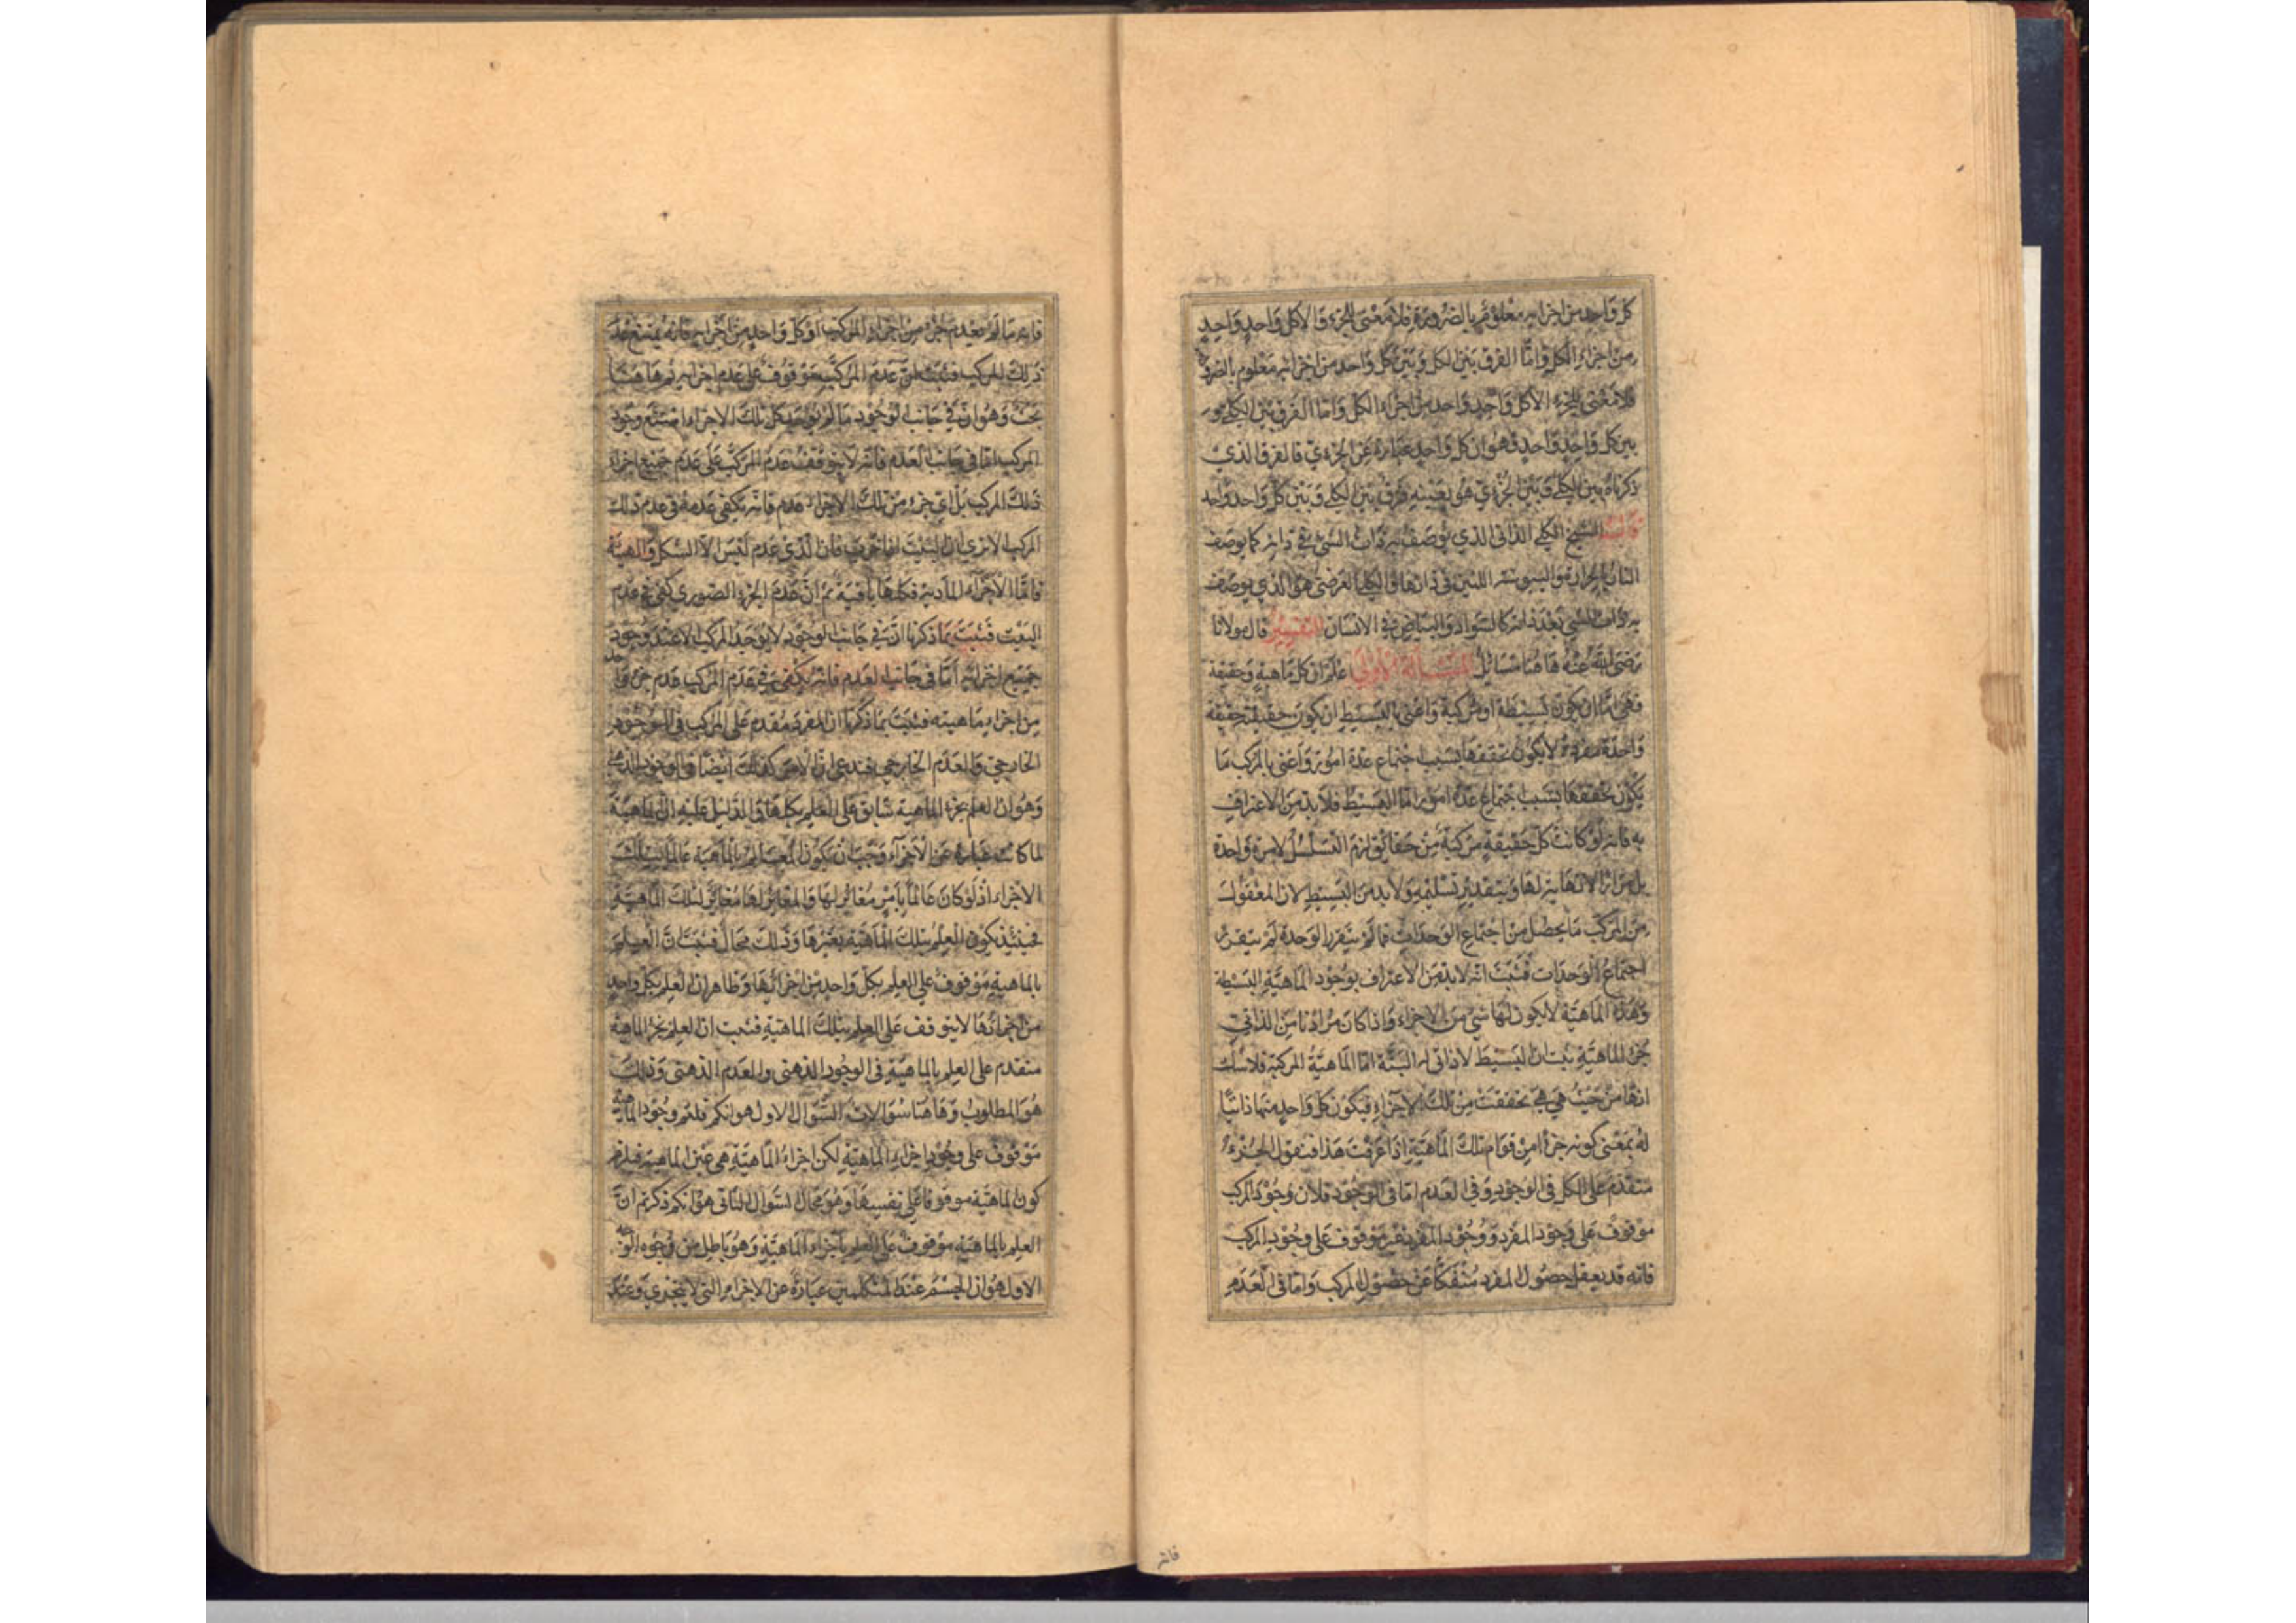 كل واحد من اجزائه معلوم بالضرورة فلا معنى للجزء الا كل واحد واحد
من اجزاء الكل واما الفرق بين الكل وبين كل واحد من اجزائه معلوم بالضرورة
فلا معنى للجزء الا كل واحد واحد من اجزاء الكل واما الفرق بين الكلي و
بين كل واحد واحد فهو ان كل واحد عبارة عن الجزءي فالفرق الذي
ذكرناه بين الكلي وبين الجزءي هو بعينه فرق بين الكلي وبين كل واحد واحد
قال الشيخ الكلي الذاتي الذي يوصف به ذات الشيء في ذاته كما يوصف
النار بالحرارة واليبوسة اللتين في ذاتها والكلي العرضي هو الذي يوصف
به ذات الشي بعد ذاته كالسواد والبياض في الانسان التفسير قال مولانا
رضي الله عنه هاهنا مسائل المسئلة الاولي اعلم ان كل ماهية وحقيقة
فهي اما ان يكون بسيطة او مركبة واعني بالبسيط ان يكون حقيقته حقيقة
واحدة مفردة لا يكون تحققها بسبب اجتماع عدة امور واعني بالمركب ما
يكون تحققها بسبب اجتماع عدة امور اما البسيط فلا بد من الاعتراف
به فانه لو كانت كل حقيقة مركبة من حقائق لزم التسلسل لا مرة واحدة
بل مرارا لا نهاية لها وبتقدير تسليمه ولا بد من البسيط لان المعقول
من المركب ما يحصل من اجتماع الوحدات فما لم يتقرر الوحدة لم يتقرر
اجتماع الوحدات فثبت انه لا بد من الاعتراف بوجود الماهية البسيطة
وهذه الماهية لا يكون لها شي من الاجزاء واذا كان مرادنا من الذاتي
جزء الماهية ثبت ان البسيط لا ذاتي له البتة اما الماهية المركبة فلا شك
انها من حيث هي هي تحققت من تلك الاجزاء فيكون كل واحد منها ذاتيا
له بمعنى كونه جزءا من قوام تلك الماهية اذا عرفت هذا فنقول الجزء
متقدم على الكل في الوجود وفي العدم اما في الوجود فلان وجود المركب
موقوف على وجود المفرد ووجود المفرد غير موقوف على وجود المركب
فانه قد يعقل حصول المفرد منفكا عن حصول المركب واما في العدم
فانه
فانه ما لم يعدم جزء من اجزاء المركب او كل واحد من اجزائه فانه يمتنع عدم
ذلك المركب فثبت ان عدم المركب موقوف على عدم اجزائه ثم هاهنا
بحث وهو ان في جانب الوجود ما لم يوجد كل تلك الاجزاء امتنع وجود
المركب اما في جانب العدم فانه لا يتوقف عدم المركب على عدم جميع اجزاء
ذلك المركب بل اي جزء من تلك الاجزاء عدم فانه يكفي عدمه في عدم ذلك
المركب الا ترى ان البيت اذا خرب فان الذي عدم ليس الا الشكل والهيئة
فاما الاجزاء المادية فكلها باقية ثم ان عدم الجزء الصوري كفى في عدم
البيت فثبت بما ذكرنا ان في جانب الوجود لا يوجد المركب الا عند وجود
جميع اجزائه اما في جانب العدم فانه يكفي في عدم المركب عدم جزء واحد
من اجزاء ماهيته فثبت بما ذكرنا ان المفرد مقدم على المركب في الوجود
الخارجي والعدم الخارجي فندعي ان الامر كذلك ايضا في الوجود الذهني
وهو ان العلم بجزء الماهية سابق على العلم بكلها والدليل عليه ان الماهية
لما كانت عبارة عن الاجزاء وجب ان يكون العالم بالماهية عالما بتلك
الاجزاء اذ لو كان عالما بامر مغائر لها والمغائر لها مغائر لتلك الماهية
فحينئذ يكون العلم بتلك الماهية بغيرها وذلك محال فثبت ان العلم
بالماهية موقوف على العلم بكل واحد من اجزائها وظاهر ان العلم بكل واحد
من اجزائها لا يتوقف على العلم بتلك الماهية فثبت ان العلم بجزء الماهية
متقدم على العلم بالماهية في الوجود الذهني والعدم الذهني وذلك
هو المطلوب وهاهنا سؤالات السؤال الاول هو انكم قلتم وجود الماهية
موقوف على وجود اجزاء الماهية لكن اجزاء الماهية هي عين الماهية فيلزم
كون الماهية موقوفا على نفسها وهو محال السؤال الثاني هو انكم ذكرتم ان
العلم بالماهية موقوف على العلم باجزاء الماهية وهو باطل من وجوه الوجه
الاول هو ان الجسم عند المتكلمين عبارة عن الاجزاء التي لا يتجزي وعند